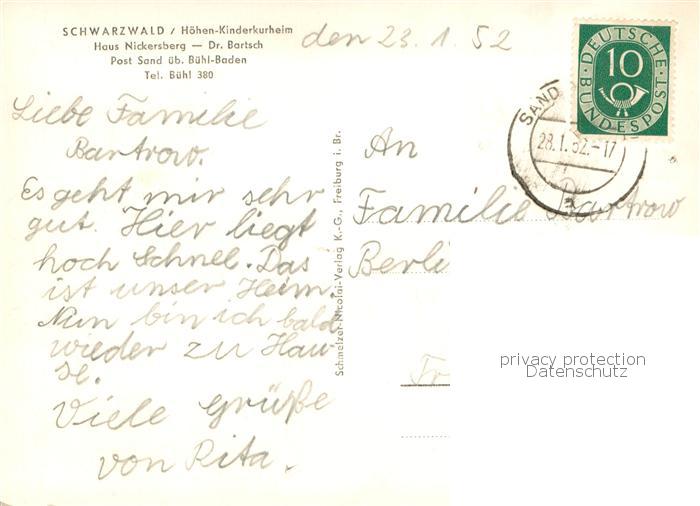 SCHWARZWALD / Höhen-Kinderkurheim
Haus Nickersberg — Dr. Bartsch
Post Sand üb. Bühl-Baden
Tel. Bühl 380
den 23. 1. 52
Liebe Familie
Bartrow.
Es geht mir sehr
gut. Hier liegt
hoch Schnel. Das
ist unser Heim.
Nun bin ich bald
wieder zu Hau-
se.
Viele Grüße
von Rita.
Schmelzer-Nicolai-Verlag K.-G., Freiburg i. Br.
DEUTSCHE
BUNDESPOST
10
SAND
28.1.52.-17
a
An
Familie Bartrow
Berli
Fr
privacy protection
Datenschutz